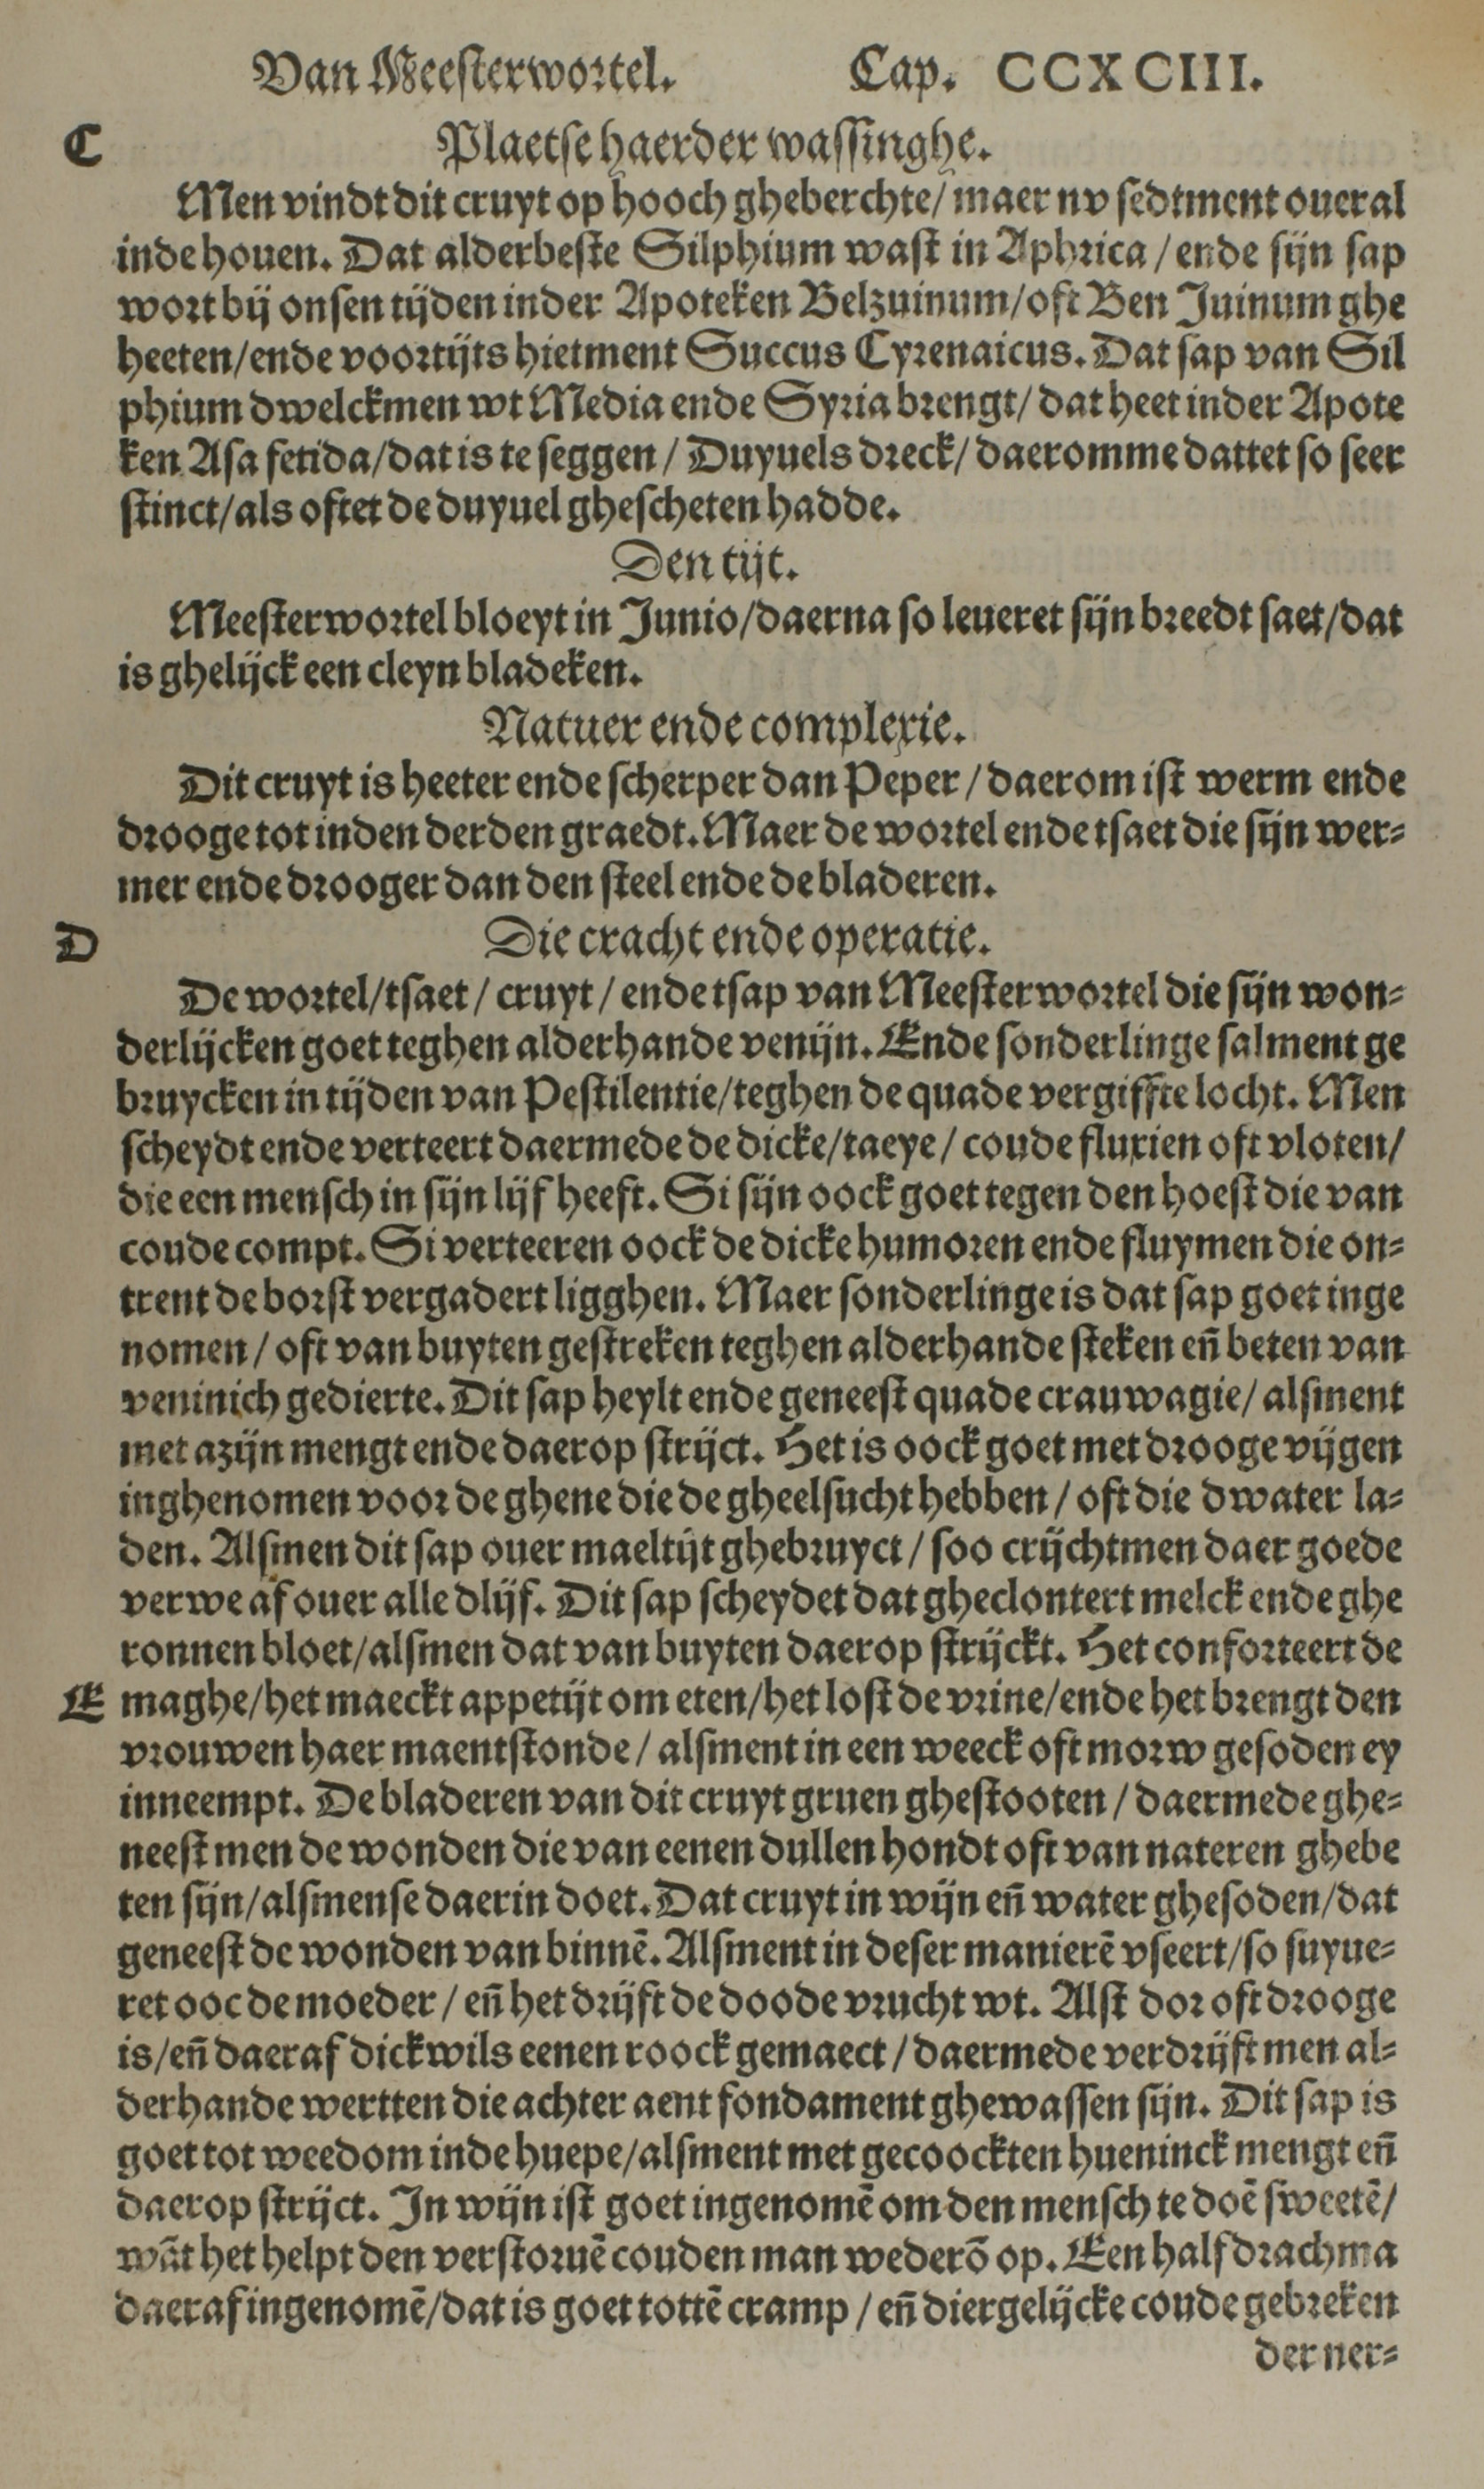 Van Meesterwortel. Cap. CCXCIII.
C Plaetse haerder wassinghe.
Men vindt dit cruyt op hooch gheberchte/ maer nv sedtment oueral
inde houen. Dat alderbeste Silphium wast in Aphrica / ende sijn sap
wort bij onsen tijden inder Apoteken Belzuinum/oft Ben Juinum ghe
heeten/ende voortijts hietment Succus Cyrenaicus. Dat sap van Sil
phium dwelckmen wt Media ende Syria brengt/ dat heet inder Apote
ken Asa fetida/dat is te seggen / Duyuels dreck/ daeromme dattet so seer
stinct/als oftet de duyuel ghescheten hadde.
Den tijt.
Meesterwortel bloeyt in Junio/daerna so leueret sijn breedt saet/dat
is ghelijck een cleyn bladeken.
Natuer ende complexie.
Dit cruyt is heeter ende scherper dan Peper / daerom ist werm ende
drooge tot inden derden graedt. Maer de wortel ende tsaet die sijn wer-
mer ende drooger dan den steel ende de bladeren.
D Die cracht ende operatie.
De wortel/tsaet / cruyt / ende tsap van Meesterwortel die sijn won-
derlijcken goet teghen alderhande venijn. Ende sonderlinge salment ge
bruycken in tijden van Pestilentie/teghen de quade vergiffte locht. Men
scheydt ende verteert daermede de dicke/taeye / coude fluxien oft vloten/
die een mensch in sijn lijf heeft. Si sijn oock goet tegen den hoest die van
coude compt. Si verteeren oock de dicke humoren ende fluymen die on-
trent de borst vergadert ligghen. Maer sonderlinge is dat sap goet inge
nomen / oft van buyten gestreken teghen alderhande steken en̄ beten van
veninich gedierte. Dit sap heylt ende geneest quade crauwagie/ alsment
met azijn mengt ende daerop strijct. Het is oock goet met drooge vijgen
inghenomen voor de ghene die de gheelsucht hebben / oft die dwater la-
den. Alsmen dit sap ouer maeltijt ghebruyct / soo crijchtmen daer goede
verwe af ouer alle dlijf. Dit sap scheydet dat gheclontert melck ende ghe
ronnen bloet/alsmen dat van buyten daerop strijckt. Het conforteert de
E maghe/het maeckt appetijt om eten/het lost de vrine/ende het brengt den
vrouwen haer maentstonde / alsment in een weeck oft morw gesoden ey
inneempt. De bladeren van dit cruyt gruen ghestooten / daermede ghe-
neest men de wonden die van eenen dullen hondt oft van nateren ghebe
ten sijn/alsmense daerin doet. Dat cruyt in wijn en̄ water ghesoden/dat
geneest de wonden van binnē. Alsment in deser manierē vseert/so suyue-
ret ooc de moeder / en̄ het drijft de doode vrucht wt. Alst dor oft drooge
is/en̄ daeraf dickwils eenen roock gemaect / daermede verdrijft men al-
derhande wertten die achter aent fondament ghewassen sijn. Dit sap is
goet tot weedom inde huepe/alsment met gecoockten hueninck mengt en̄
daerop strijct. In wijn ist goet ingenomē om den mensch te doē sweetē/
wāt het helpt den verstoruē couden man wederō op. Een half drachma
daeraf ingenomē/dat is goet tottē cramp / en̄ diergelijcke coude gebreken
der ner-